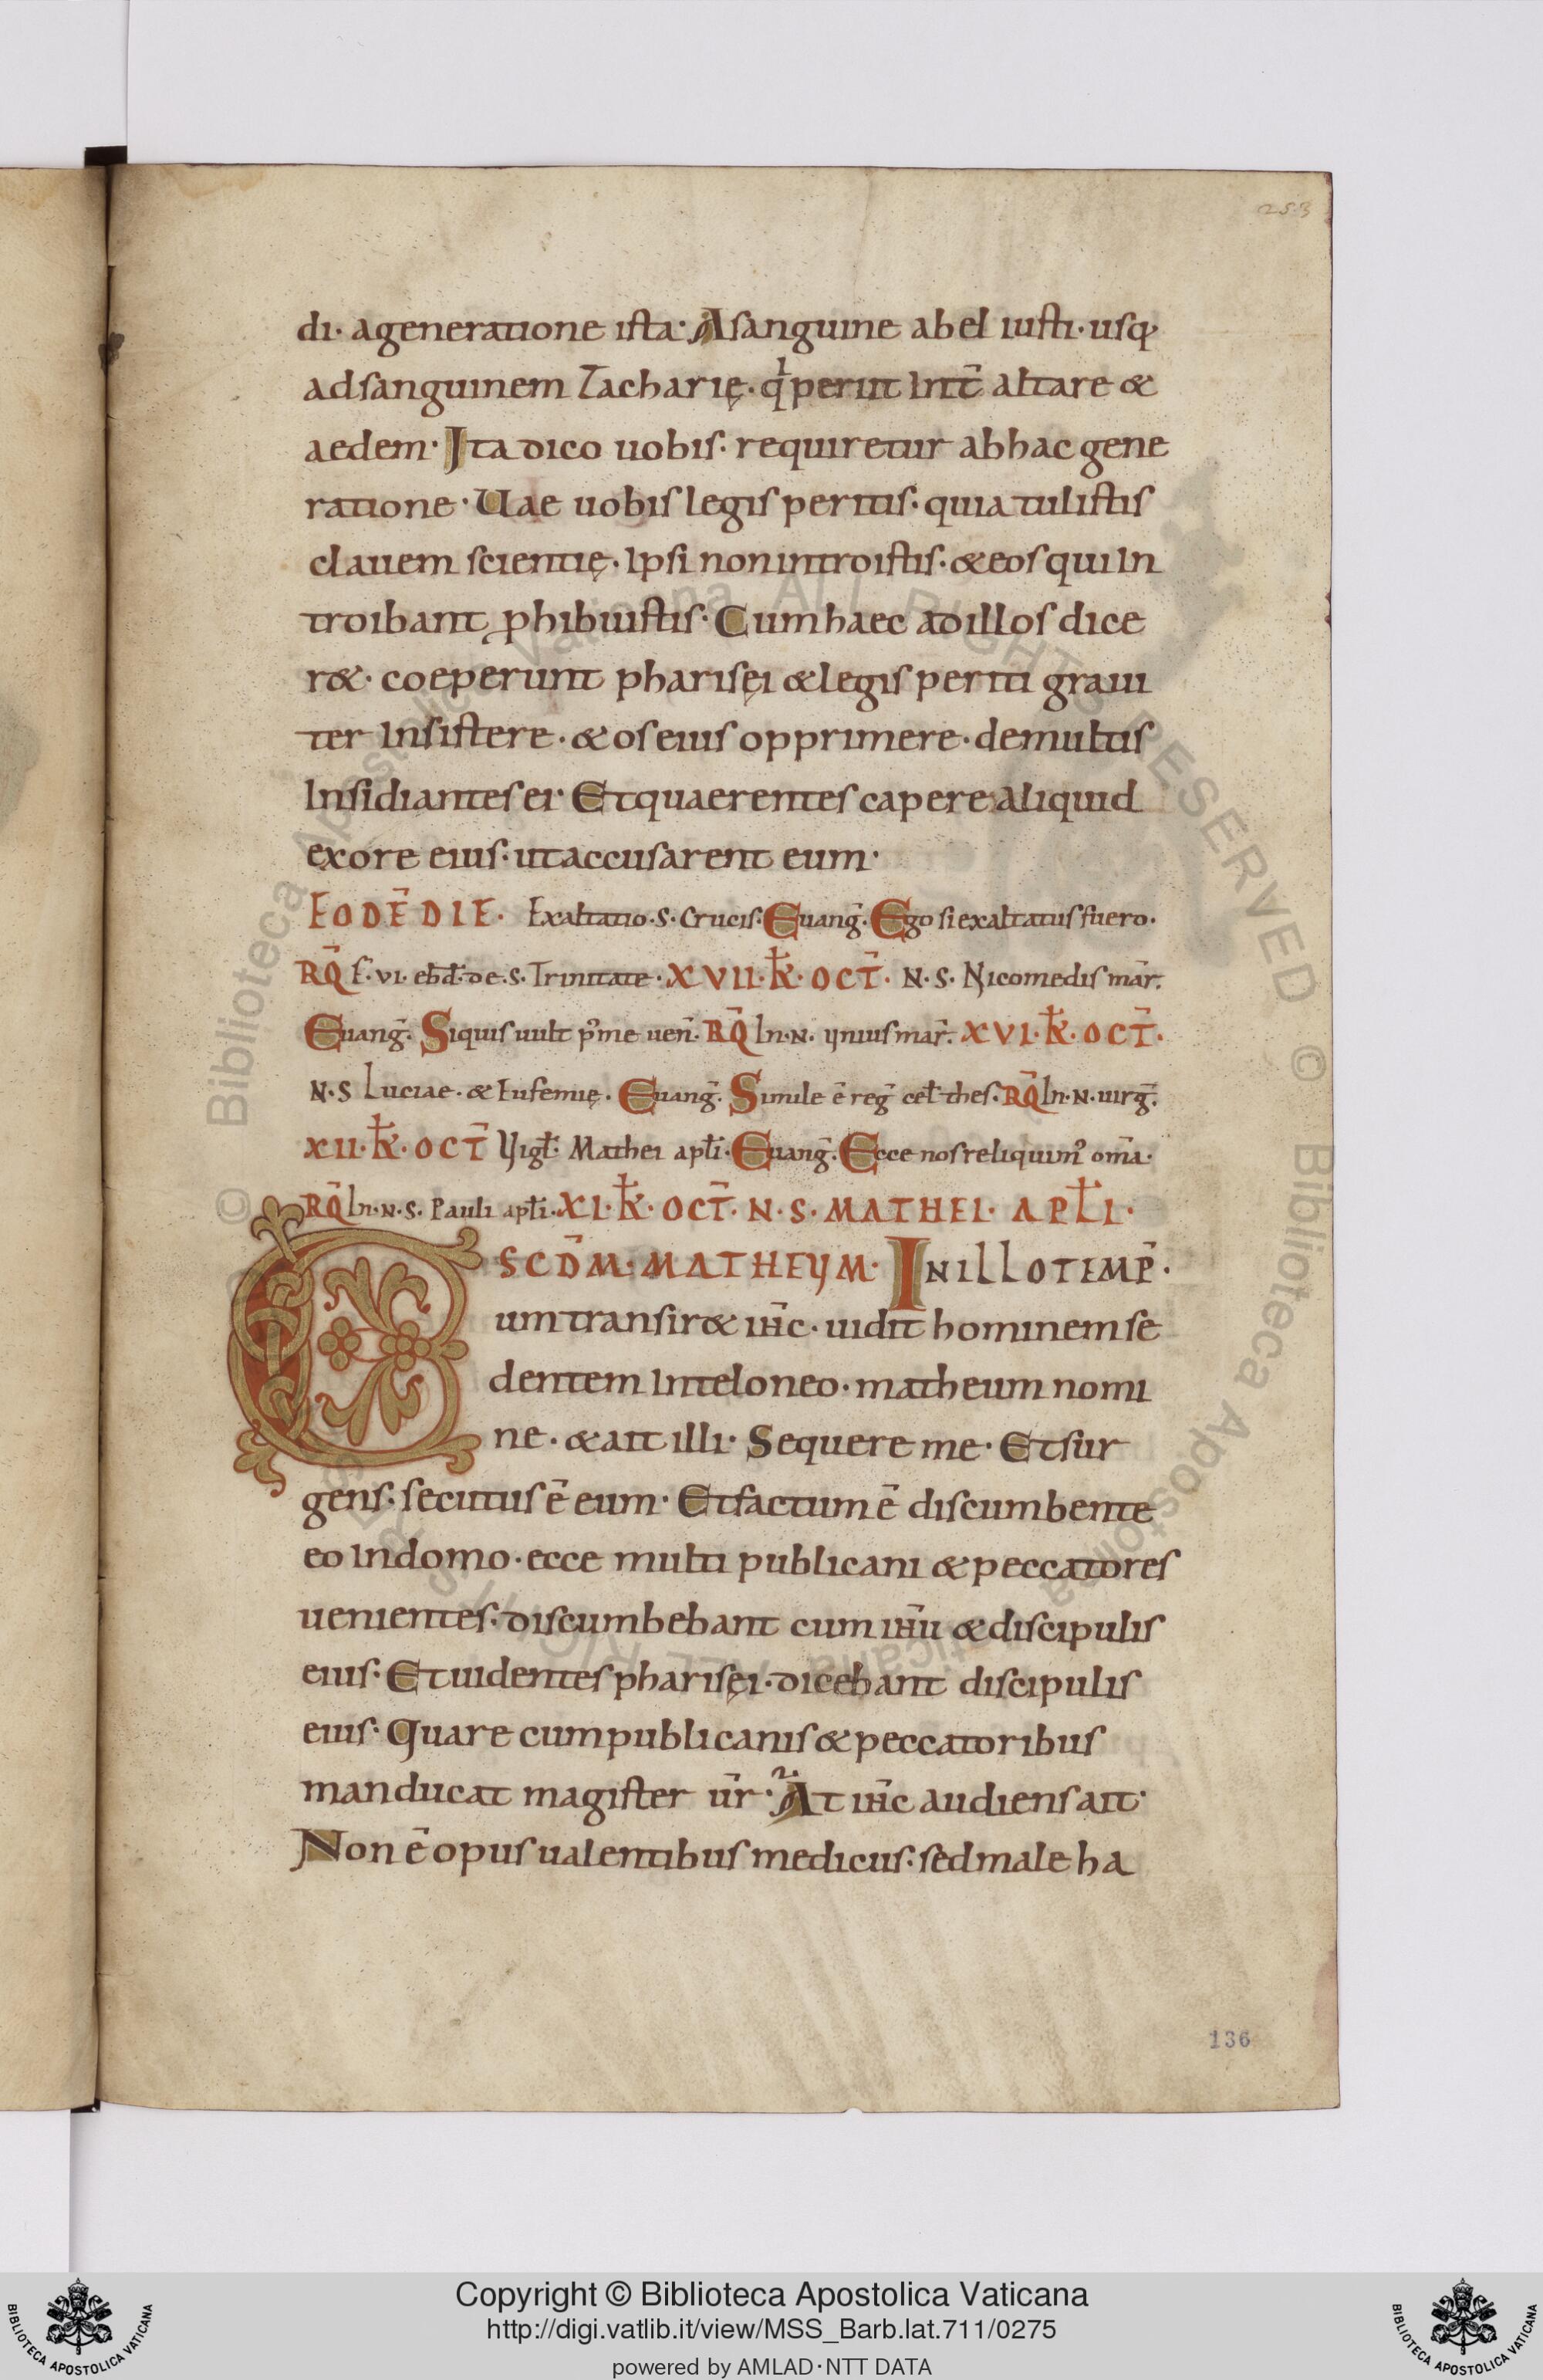 253
di· ageneratione ista· Asanguine abel iusti· usq·
adsanguinem Zacharię· qͥ periit Int̄ altare &
aedem· Ita dico uobis· requiretur abhac gene
ratione· Uae uobis legis peritis· quia tulistis
clauem scientię· Ipsi non introistis· & eos qui In
troibant ꝓhibuistis· Cum haec ad illos dice
r&· coeperunt pharisęi & legis periti graui
ter Insistere· & os eius opprimere· de multis
Insidiantes ei· Et quaerentes capere aliquid
ex ore eius· ut accusarent eum·
EODĒ DIE· Exaltatio· S· Crucis· Euang̅· Ego si exaltatus fuero·
RQ̄ F· VI· ebd̄· de· S· Trinitate· XVII· K̄· OCT̄· N· S· Nicomedis mar̄·
Euang̅· Siquis uult p̾ me uen̄· RQ̄ In· N· unius mar̄· XVI· K̄· OCT̄·
N· S Luciae· & Eufemię· Euang̅· Simile ē reg̅ cel̄ thes· RQ̄ In· N· uirg̅·
XII· K̄· OCT̄ Uigl̄· Mathei apl̄i· Euang̅· Ecce nos reliquim᾽ om̄a·
RQ̄ In· N· S· Pauli apl̄i· XI· K̄· OCT̄· N· S· MATHEI· APL̄I·
SCD̄M· MATHEUM· IN ILLO TEMP̄·
Cum transir& ih̄c· uidit hominem se
dentem In teloneo· matheum nomi
ne· & ait illi· Sequere me· Et sur
gens· secutus ē eum· Et factum ē discumbente
eo In domo· ecce multi publicani & peccatores
uenientes· discumbebant cum ih̄u & discipulis
eius· Et uidentes pharisęi· dicebant discipulis
eius· Quare cum publicanis & peccatoribus
manducat magister ūr· At ih̄c audiens ait·
Non ē opus ualentibus medicus· sed male ha
136
© Biblioteca Apostolica Vaticana ALL RIGHTS RESERVED
Copyright © Biblioteca Apostolica Vaticana
http://digi.vatlib.it/view/MSS_Barb.lat.711/0275
powered by AMLAD·NTT DATA
BIBLIOTECA APOSTOLICA VATICANA
BIBLIOTECA APOSTOLICA VATICANA